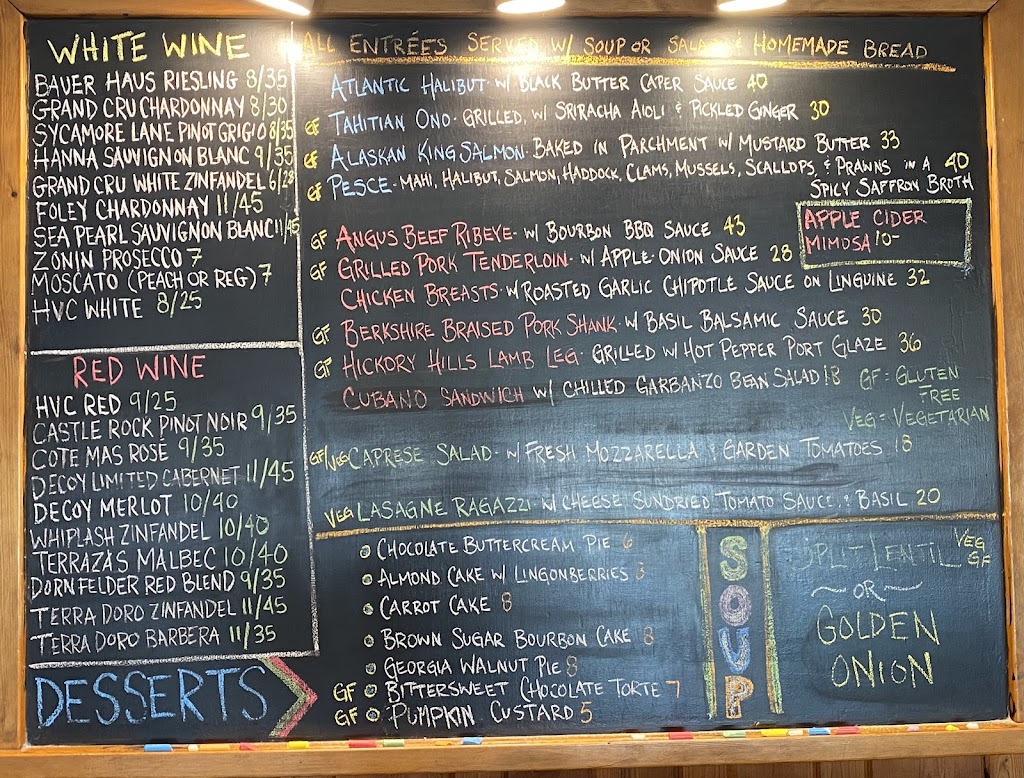 WHITE WINE
BAUER HAUS RIESLING 8/35
GRAND CRU CHARDONNAY 8/30
SYCAMORE LANE PINOT GRIGIO 8/35
HANNA SAUVIGNON BLANC 9/35
GRAND CRU WHITE ZINFANDEL 6/28
FOLEY CHARDONNAY 11/45
SEA PEARL SAUVIGNON BLANC 11/45
ZONIN PROSECCO 7
MOSCATO (PEACH OR REG) 7
HVC WHITE 8/25
RED WINE
HVC RED 9/25
CASTLE ROCK PINOT NOIR 9/35
COTE MAS ROSÉ 9/35
DECOY LIMITED CABERNET 11/45
DECOY MERLOT 10/40
WHIPLASH ZINFANDEL 10/40
TERRAZAS MALBEC 10/40
DORNFELDER RED BLEND 9/35
TERRA DORO ZINFANDEL 11/45
TERRA DORO BARBERA 11/35
DESSERTS
ALL ENTRÉES SERVED W/ SOUP OR SALAD & HOMEMADE BREAD
ATLANTIC HALIBUT - W/ BLACK BUTTER CAPER SAUCE 40
GF TAHITIAN ONO - GRILLED, W/ SRIRACHA AIOLI & PICKLED GINGER 30
GF ALASKAN KING SALMON - BAKED IN PARCHMENT W/ MUSTARD BUTTER 33
GF PESCE - MAHI, HALIBUT, SALMON, HADDOCK, CLAMS, MUSSELS, SCALLOPS, & PRAWNS IN A 40
SPICY SAFFRON BROTH
APPLE CIDER
MIMOSA 10-
GF ANGUS BEEF RIBEYE - W/ BOURBON BBQ SAUCE 43
GF GRILLED PORK TENDERLOIN - W/ APPLE-ONION SAUCE 28
CHICKEN BREASTS - W/ ROASTED GARLIC CHIPOTLE SAUCE ON LINGUINE 32
GF BERKSHIRE BRAISED PORK SHANK - W/ BASIL BALSAMIC SAUCE 30
GF HICKORY HILLS LAMB LEG - GRILLED W/ HOT PEPPER PORT GLAZE 36
CUBANO SANDWICH W/ CHILLED GARBANZO BEAN SALAD 18
GF = GLUTEN
FREE
VEG = VEGETARIAN
GF/VEG CAPRESE SALAD - W/ FRESH MOZZARELLA & GARDEN TOMATOES 18
VEG LASAGNE RAGAZZI - W/ CHEESE SUNDRIED TOMATO SAUCE & BASIL 20
CHOCOLATE BUTTERCREAM PIE 6
ALMOND CAKE W/ LINGONBERRIES
CARROT CAKE 8
BROWN SUGAR BOURBON CAKE 8
GEORGIA WALNUT PIE 8
GF BITTERSWEET CHOCOLATE TORTE 7
GF PUMPKIN CUSTARD 5
SOUP
SPLIT LENTIL VEG
GF
~ OR ~
GOLDEN
ONION